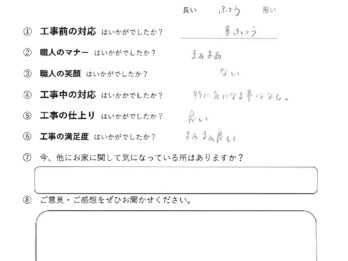 良い ふつう 悪い
① 工事前の対応 はいかがでしたか？ まあふつう
② 職人のマナー はいかがでしたか？ まあまあ
③ 職人の笑顔 はいかがでしたか？ ない
④ 工事中の対応 はいかがでしたか？ 特に気になる事はなし。
⑤ 工事の仕上り はいかがでしたか？ 良い
⑥ 工事の満足度 はいかがでしたか？ まあまあ良い
⑦ 今、他にお家に関して気になっている所はありますか？
⑧ ご意見・ご感想をぜひお聞かせください。